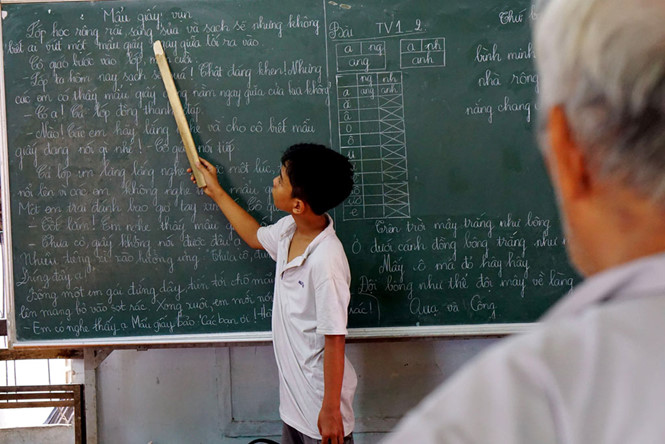 Mẩu giấy vụn
Lớp học rộng rãi, sáng sủa và sạch sẽ nhưng không
biết ai vứt một mẩu giấy ngay giữa lối ra vào.
Cô giáo bước vào lớp, mỉm cười:
- Lớp ta hôm nay sạch sẽ quá! Thật đáng khen! Nhưng
các em có thấy mẩu giấy đang nằm ngay giữa cửa kia không
- Có ạ! Cả lớp đồng thanh đáp.
- Nào! Các em hãy lắng nghe và cho cô biết mẩu
giấy đang nói gì nhé! - Cô giáo nói tiếp.
Cả lớp im lặng lắng nghe. một lúc,
nổi lên vì các em không nghe mẩu
Một em trai đánh bạo giơ tay xin
- Tốt lắm! Em nghe thấy mẩu
- Thưa cô, giấy không nói được đâu ạ!
Nhiều tiếng xì xào hưởng ứng: "Thưa cô, đúng
Đúng đấy ạ!"
Bỗng một em gái đứng dậy, tiến tới chỗ mẩu
lên mang bỏ vào sọt rác. Xong xuôi, em mới nói
- Em có nghe thấy ạ. Mẩu giấy bảo: "Các bạn ơi! Hãy
sọt rác!"
Bài TV1 2
a ng
ang
a nh
anh
ng nh
a ang anh
ă
â
o
ô
u
ư
e
Trên trời mây trắng như bông
Ở dưới cánh đồng bông trắng như
Mấy cô má đỏ hây hây
Đội bông như thể đội mây về làng
Quạ và Công
Thứ
bình minh
nhà rông
nắng chang